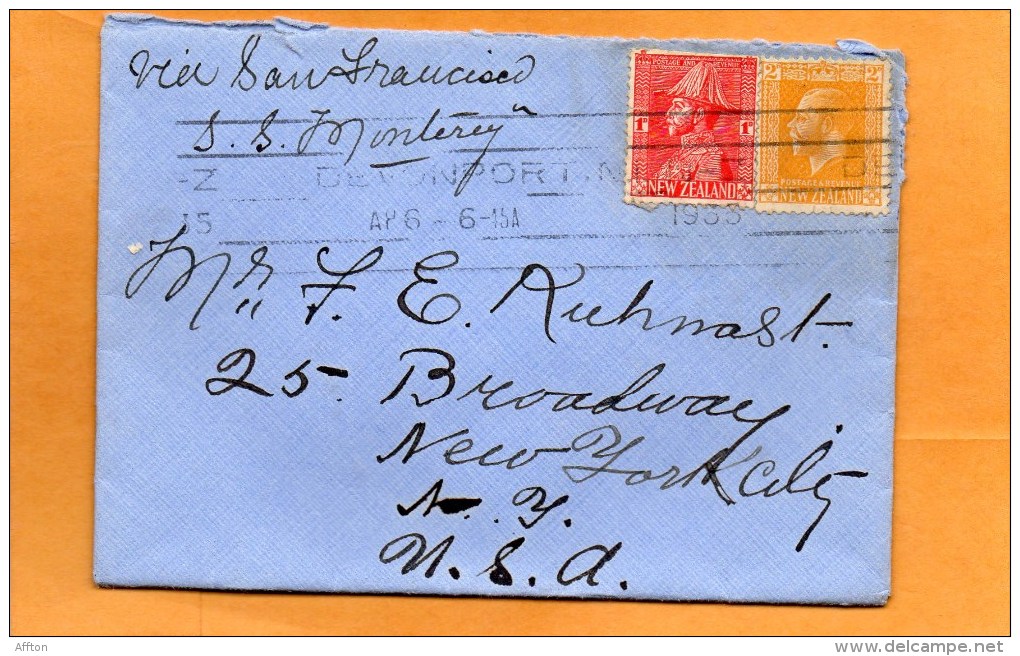 via San Francisco
S. S. Monterey"
POSTAGE AND REVENUE
1D 1D
NEW ZEALAND
2D 2D
POSTAGE & REVENUE
NEW ZEALAND
-Z DEVONPORT.N DE
15 AP 6 - 6-15A 1933
Mr. F. E. Kuhnast.
25 Broadway
New York City
N. Y.
U. S. A.
Affton
www.delcampe.net